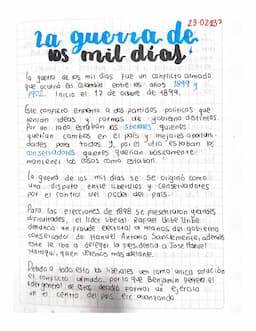 23-02-23
La guerra de
los mil días.
La guerra de los mil días fue un conflicto armado
que ocurrió en Colombia entre los años 1899 y
1902. Inició el 17 de octubre de 1899.
Este conflicto enfrentó a dos partidos políticos que
tenían ideas y formas de gobierno distintas.
Por un lado estaban los liberales quienes
querían cambios en el país y mejores oportuni-
dades para todos y, por el otro estaban los
conservadores quienes querían básicamente
mantener las cosas como estaban.
La guerra de los mil días se originó como
una disputa entre liberales y conservadores
por el control del poder del país.
Para las elecciones de 1898 se presentaron grandes
dificultades, el líder liberal Rafael Uribe Uribe
denunció un fraude electoral a manos del gobierno
conservador de Manuel Antonio Sanclemente, además
este le iba a delegar la presidencia a José Manuel
Marroquí, quien veremos más adelante.
Debido a todo esto los liberales ven como única solución
el conflicto armado, por lo que Benjamín Herrera el
líder general de
formar un ejército
en el centro del país,